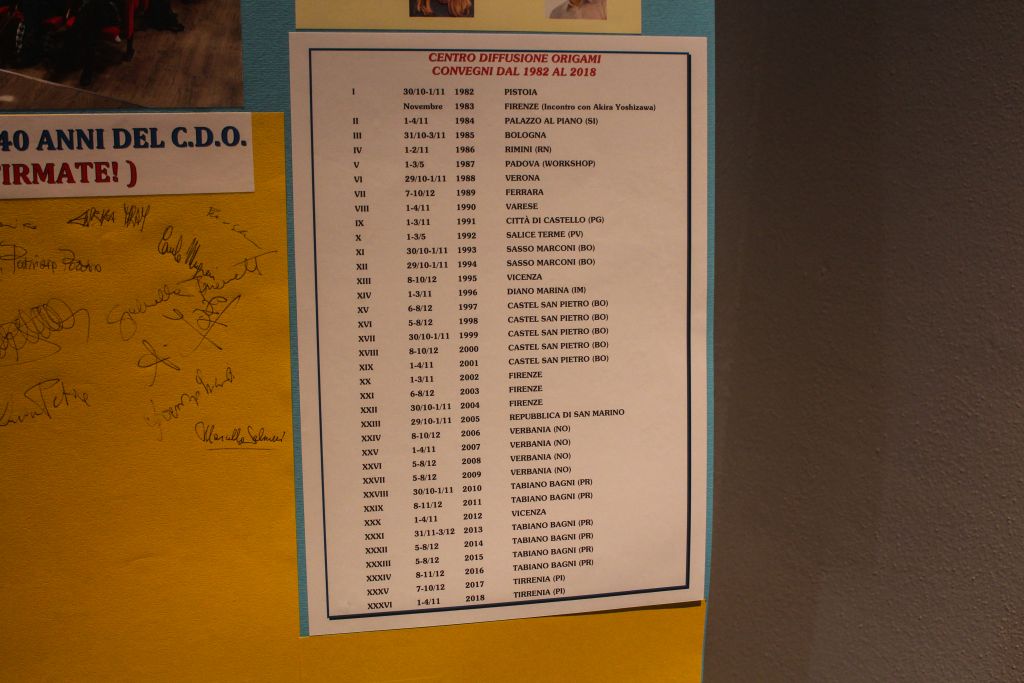 CENTRO DIFFUSIONE ORIGAMI
CONVEGNI DAL 1982 AL 2018
I 30/10-1/11 1982 PISTOIA
Novembre 1983 FIRENZE (Incontro con Akira Yoshizawa)
II 1-4/11 1984 PALAZZO AL PIANO (SI)
III 31/10-3/11 1985 BOLOGNA
IV 1-2/11 1986 RIMINI (RN)
V 1-3/5 1987 PADOVA (WORKSHOP)
VI 29/10-1/11 1988 VERONA
VII 7-10/12 1989 FERRARA
VIII 1-4/11 1990 VARESE
IX 1-3/11 1991 CITTÀ DI CASTELLO (PG)
X 1-3/5 1992 SALICE TERME (PV)
XI 30/10-1/11 1993 SASSO MARCONI (BO)
XII 29/10-1/11 1994 SASSO MARCONI (BO)
XIII 8-10/12 1995 VICENZA
XIV 1-3/11 1996 DIANO MARINA (IM)
XV 6-8/12 1997 CASTEL SAN PIETRO (BO)
XVI 5-8/12 1998 CASTEL SAN PIETRO (BO)
XVII 30/10-1/11 1999 CASTEL SAN PIETRO (BO)
XVIII 8-10/12 2000 CASTEL SAN PIETRO (BO)
XIX 1-4/11 2001 CASTEL SAN PIETRO (BO)
XX 1-3/11 2002 FIRENZE
XXI 6-8/12 2003 FIRENZE
XXII 30/10-1/11 2004 FIRENZE
XXIII 29/10-1/11 2005 REPUBBLICA DI SAN MARINO
XXIV 8-10/12 2006 VERBANIA (NO)
XXV 1-4/11 2007 VERBANIA (NO)
XXVI 5-8/12 2008 VERBANIA (NO)
XXVII 5-8/12 2009 VERBANIA (NO)
XXVIII 30/10-1/11 2010 TABIANO BAGNI (PR)
XXIX 8-11/12 2011 TABIANO BAGNI (PR)
XXX 1-4/11 2012 VICENZA
XXXI 31/11-3/12 2013 TABIANO BAGNI (PR)
XXXII 5-8/12 2014 TABIANO BAGNI (PR)
XXXIII 5-8/12 2015 TABIANO BAGNI (PR)
XXXIV 8-11/12 2016 TABIANO BAGNI (PR)
XXXV 7-10/12 2017 TIRRENIA (PI)
XXXVI 1-4/11 2018 TIRRENIA (PI)
40 ANNI DEL C.D.O.
IRMATE! )